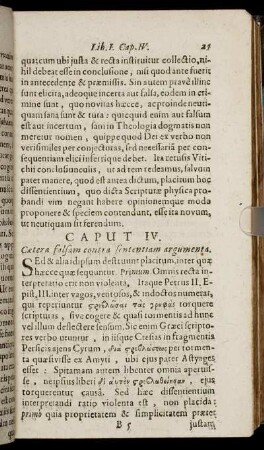 Lib. I. Cap. IV. 25
quatcum ubi justa & recta instituitur collectio, ni-
hil debeat esse in conclusione, nisi quod ante fuerit
in antecedente & præmissis. Sin autem pravè illinc
sunt elicita, adeoque incerta aut falsa, eodem in cri-
mine sunt, quo novitas hæcce, ac proinde neuti-
quam sana sunt & tuta: quicquid enim aut falsum
est aut incertum, sani in Theologia dogmatis non
meretur nomen, quippe quod Dei ex verbo non
verisimiles per conjecturas, sed necessariâ per con-
sequentiam elici inferrique debet. Ita retusis Viti-
chii conclusiunculis, ut ad rem redeamus, salvum
patet manere, quod est antea dictum, placitum hoc
dissentientium, quo dicta Scripturæ physica pro-
bandi vim negant habere opinionemque moda
proponere & speciem contendunt, esse ita novum,
ut neutiquam sit ferendum.
CAPUT IV.
Cætera falsam contra sententiam argumenta.
SEd & alia idipsum destruunt placitum, inter quæ
hæcce quæ sequuntur. Primum. Omnis recta in-
terpretatio erit non violenta, Itaque Petrus II, E-
pist, III. inter vagos, ventolos, & indoctos numerat,
qui reperiuntur στρεβλοῦσαι τὰς γραφὰς torquere
scripturas, sive cogere & quasi tormentis ad hunc
vel illum deflectere sensum. Sic enim Græci scripto-
res verbo utuntur, in iisque Ctesias in fragmentis
Persicis ajens Cyrum, διὰ στρεβλώσεως per tormen-
ta quæsivisse ex Amyti, ubi ejus pater Astynges
esset: Spitamam autem libenter omnia aperuis-
se, ne ipsius liberi δι᾽ αὐτὸν στρεβλωθείησαν, ejus
torquerentur causâ. Sed hæc dissentientium
interpretandi ratio violenta est, non placida:
primò quia proprietatem & simplicitatem præter
B 5 justam